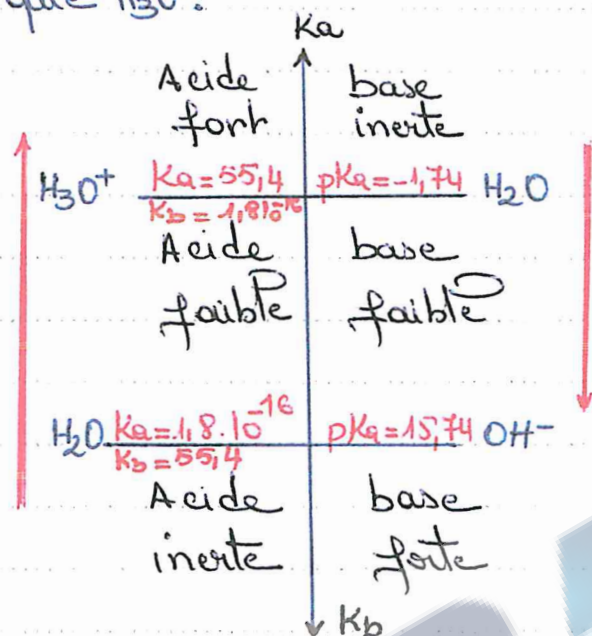 que H3O.
Ka
Acide base
fort inerte
H₃O⁺ Ka=55,4 pKa=-1,74 H₂O
Kb=1,8 10⁻¹⁶
Acide base
faible faible
H₂O Ka=1,8.10⁻¹⁶ pKa=15,74 OH⁻
Kb=55,4
Acide base
inerte forte
Kb